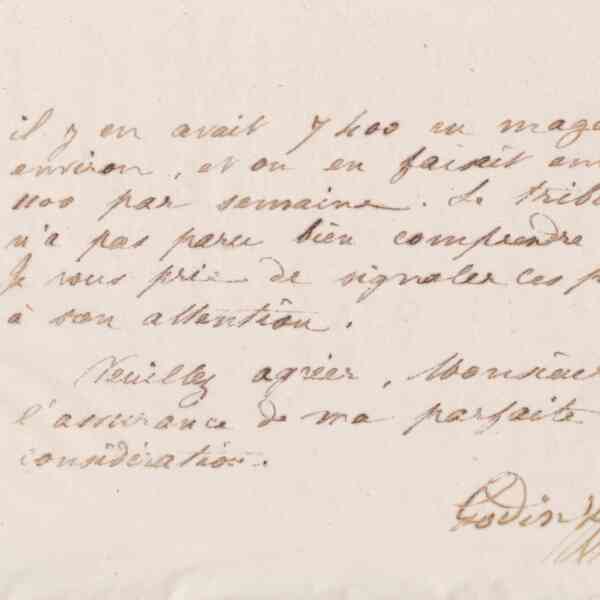 il y en avait 7400 en maga
environ, et on en faisait en
1100 par semaine. Le tribu
n'a pas paru bien comprendre
Je vous prie de signaler ces p
à son attention.
Veuillez agréer, Monsieur
l'assurance de ma parfaite
considération.
Godin